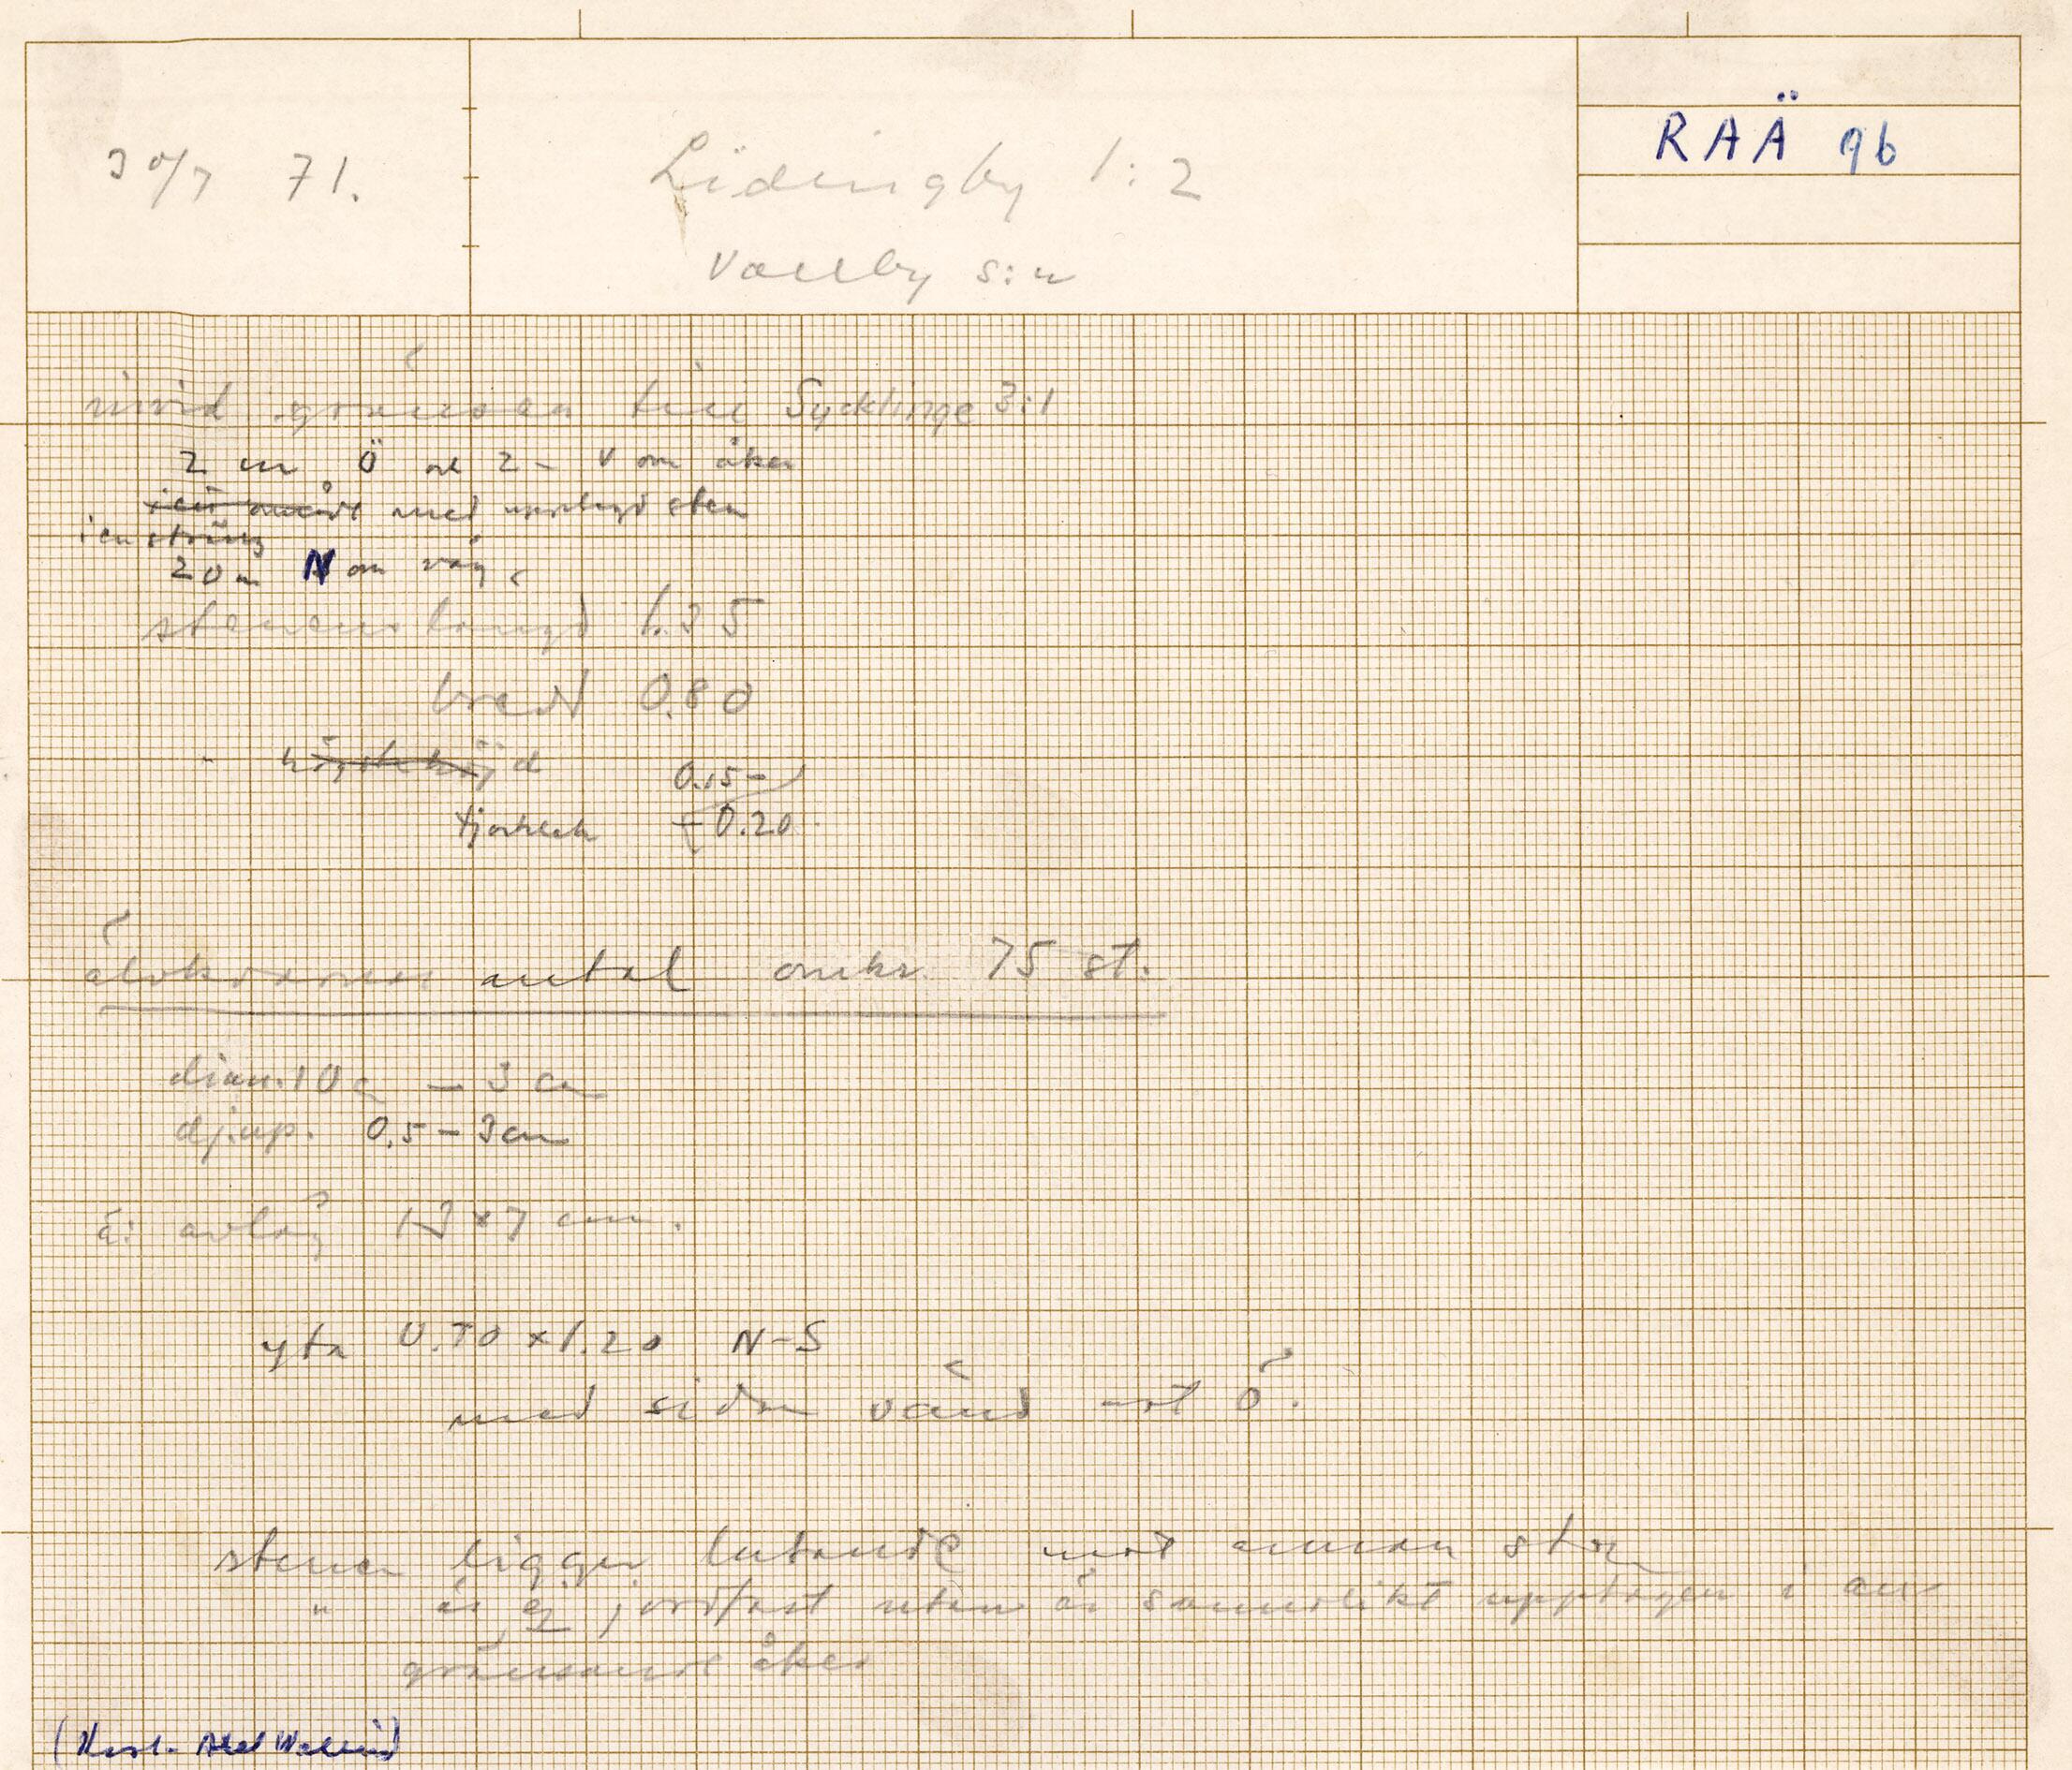 30/7 71.
Lidingby 1:2
RAÄ 96
Vallby s:n
invid gränsen till Sycklinge 3:1
2 m Ö och 2 - V om åker
med upplagd sten
i en sträng
20 m N om väg.
stenens längd 1.35
bredd 0.80
högsta höjd
0.15 -
tjocklek - 0.20
älvkvarnar antal omkr. 75 st.
diam. 10 c - 3 cm
djup. 0,5 - 3 cm
avlång 13 x 7 cm.
yta 0.70 x 1.20 N-S
med sidan vänd mot Ö.
stenen ligger lutande mot annan sten
" är ej jordfast utan är sannolikt upptagen i an
gränsande åker